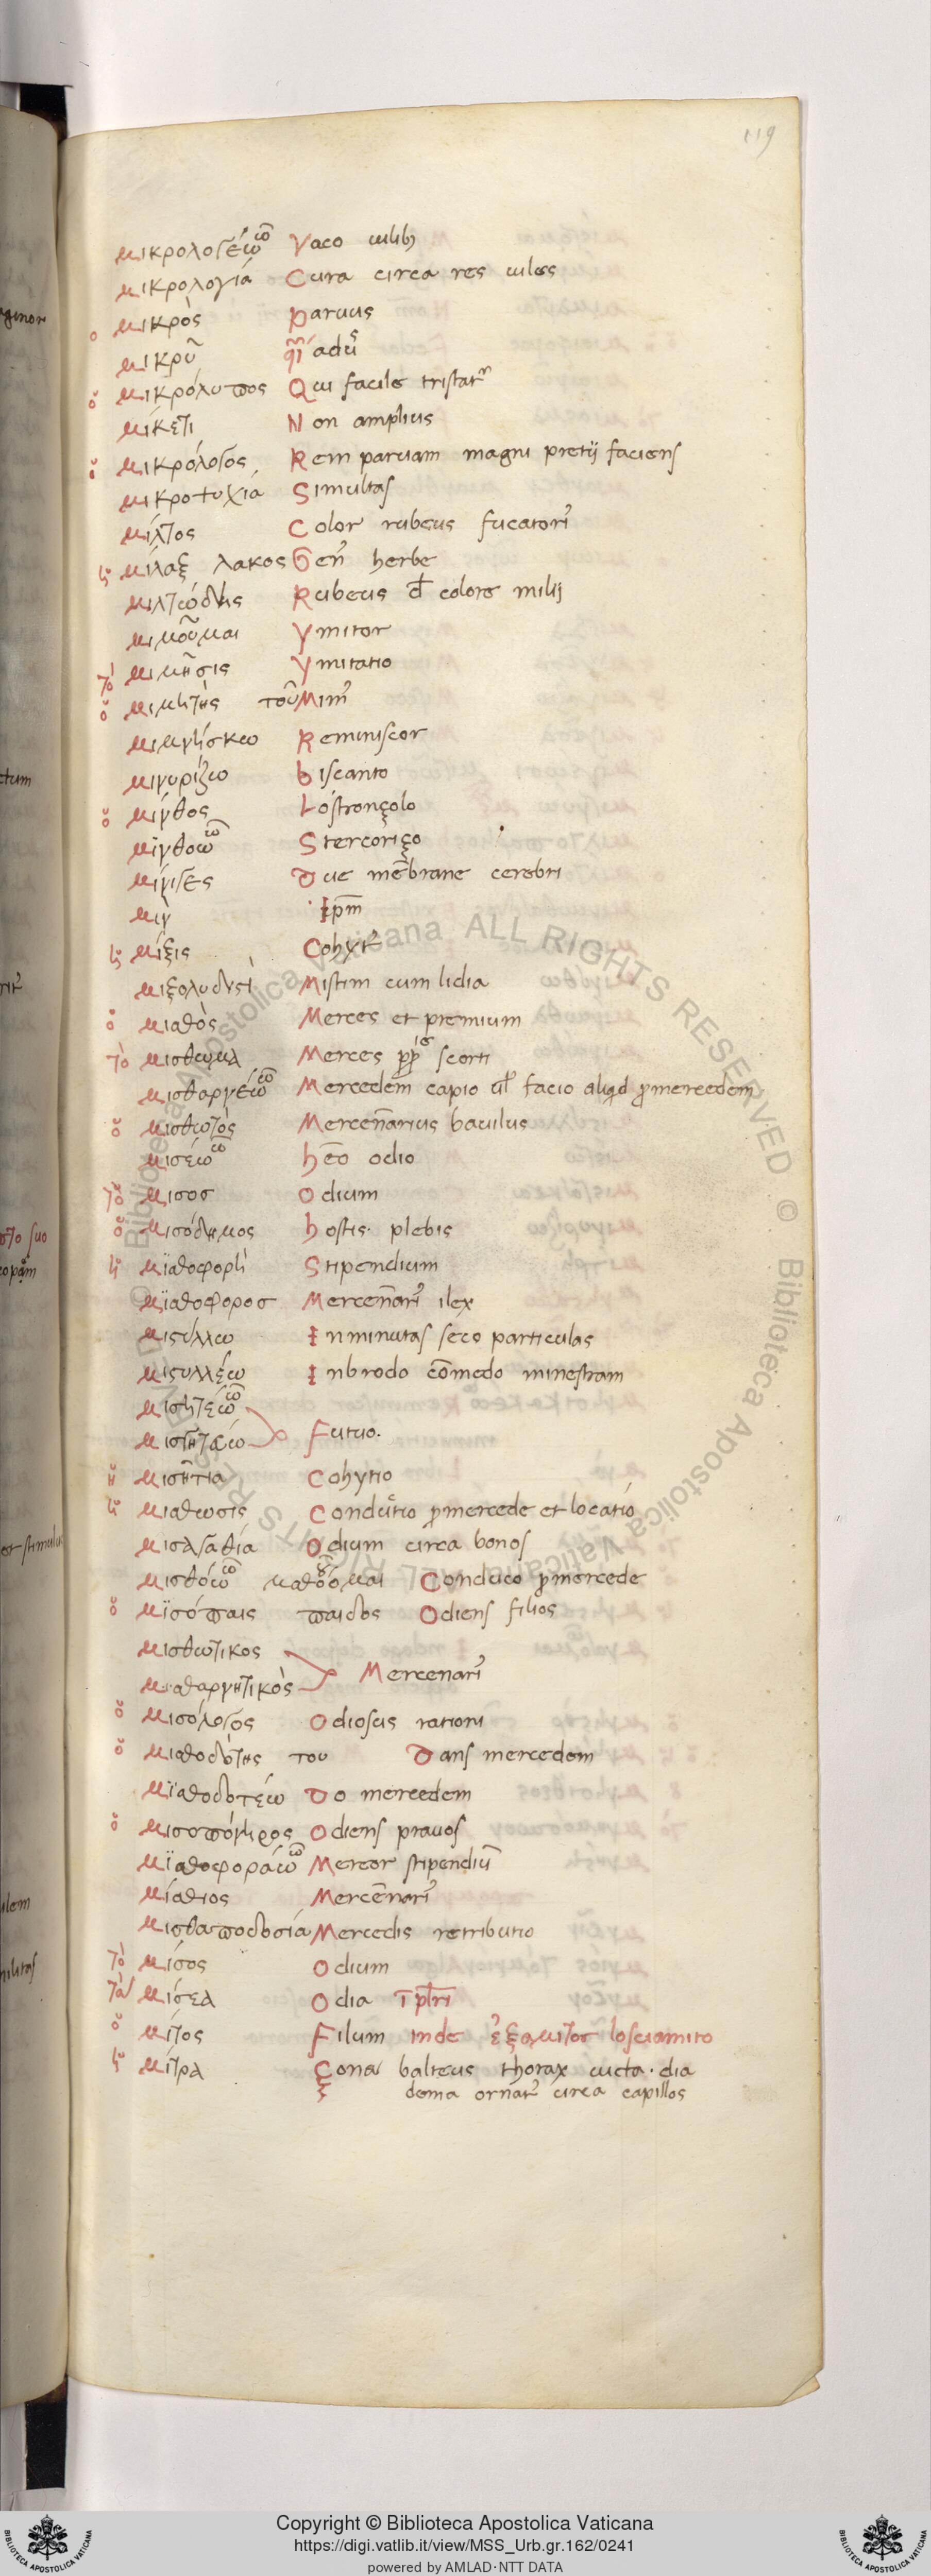 119
μικρολογέω ῶ Vaco uilib;
μικρολογία Cura circa res uiles
ο μικρὸς Paruus
μικρῦ adu
ὁ μικρόλυπος Qui facile tristatr
μίκετι Non amplius
ὁ μικρόλογος Rem paruam magni pretij faciens
μικροτυχία Simultas
μίλτος Color rubeus fucator
ἡ μίλαξ λακος Gen herbe
μιλτώδης Rubeus colore milij
μιμοῦμαι Ymitor
τὸ μιμῆσις Ymitatio
ὁ μιμητὴς τοῦ Mim
μιμνήσκω Reminiscor
μινυρίζω biscanto
ὁ μίνθος Lostronçolo
μινθοω ῶ Stercoriço
μίνιγες Due mēbrane cerebri
μὶν Ipm
ἡ μίξις Cohyt
μιξολυδιστὶ Mistim cum lidia
ὁ μισθὸς Merces et premium
τὸ μισθωμα Merces scorti
μισθαρνέω ῶ Mercedem capio ul facio aliqd p mercedem
ὁ μισθωτὸς Mercenarius baiulus
μισέω ῶ heo odio
τὸ μισος Odium
ὁ μισόδημος hostis plebis
ἡ μισθοφορὴ Stipendium
μισθοφορος Mercenar ilex
μιστύλλω In minutas seco particulas
μιστυλλέω In brodo cōmedo minestram
μισητεω ῶ
μισητεύω Futuo.
ἡ μισῆτια Cohytio
ἡ μισθωσις Conductio p mercede et locatio
μισαγαθία Odium circa bonos
μισθόω ῶ μισθοῦμαι Conduco p mercede
ὁ μισόπαις παιδος Odiens filios
μισθωτικος
μισθαρνητικὸς Mercenari
ὁ μισόλογος Odiosus rationi
ὁ μισθοδότης του Dans mercedem
μισθοδοτέω Do mercedem
ὁ μισοπόνηρος Odiens prauos
μισθοφοράω ῶ Mereor stipendiū
μίσθιος Mercenari
μισθαποδοσία Mercedis retributio
τὸ μίσος Odium
τὰ μίσεα Odia
ὁ μίτος Filum inde ἑξαμιτος losciamito
ἡ μίτρα Çona balteus thorax uicta dia
dema ornat circa capillos
Copyright © Biblioteca Apostolica Vaticana
https://digi.vatlib.it/view/MSS_Urb.gr.162/0241
powered by AMLAD·NTT DATA